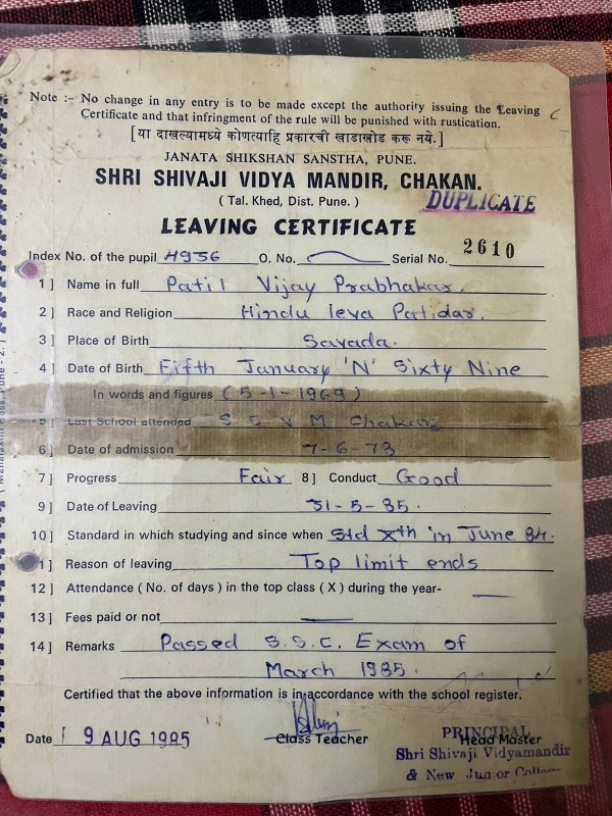 Note :- No change in any entry is to be made except the authority issuing the Leaving
Certificate and that infringment of the rule will be punished with rustication.
[या दाखल्यामध्ये कोणत्याहि प्रकारची खाडाखोड करू नये.]
JANATA SHIKSHAN SANSTHA, PUNE.
SHRI SHIVAJI VIDYA MANDIR, CHAKAN.
( Tal. Khed, Dist. Pune. )
DUPLICATE
LEAVING CERTIFICATE
Index No. of the pupil 4956 O. No. Serial No. 2610
1] Name in full Patil Vijay Prabhakar.
2] Race and Religion Hindu leva Patidar.
3] Place of Birth Savada.
4] Date of Birth Fifth January 'N' Sixty Nine
In words and figures (5-1-1969)
5] Last School attended S S V M Chakan
6] Date of admission 7-6-73
7] Progress Fair 8] Conduct Good
9] Date of Leaving 31-5-85.
10] Standard in which studying and since when Std Xth in June 84.
11] Reason of leaving Top limit ends
12] Attendance ( No. of days ) in the top class ( X ) during the year-
13] Fees paid or not
14] Remarks Passed S.S.C. Exam of
March 1985.
Certified that the above information is in accordance with the school register.
Date 19 AUG 1985 Class Teacher Head Master
PRINCIPAL
Shri Shivaji Vidyamandir
& New Junior College